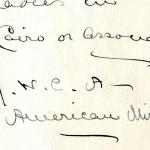 Cairo or Associa
Y. W. C. A—
American Mi